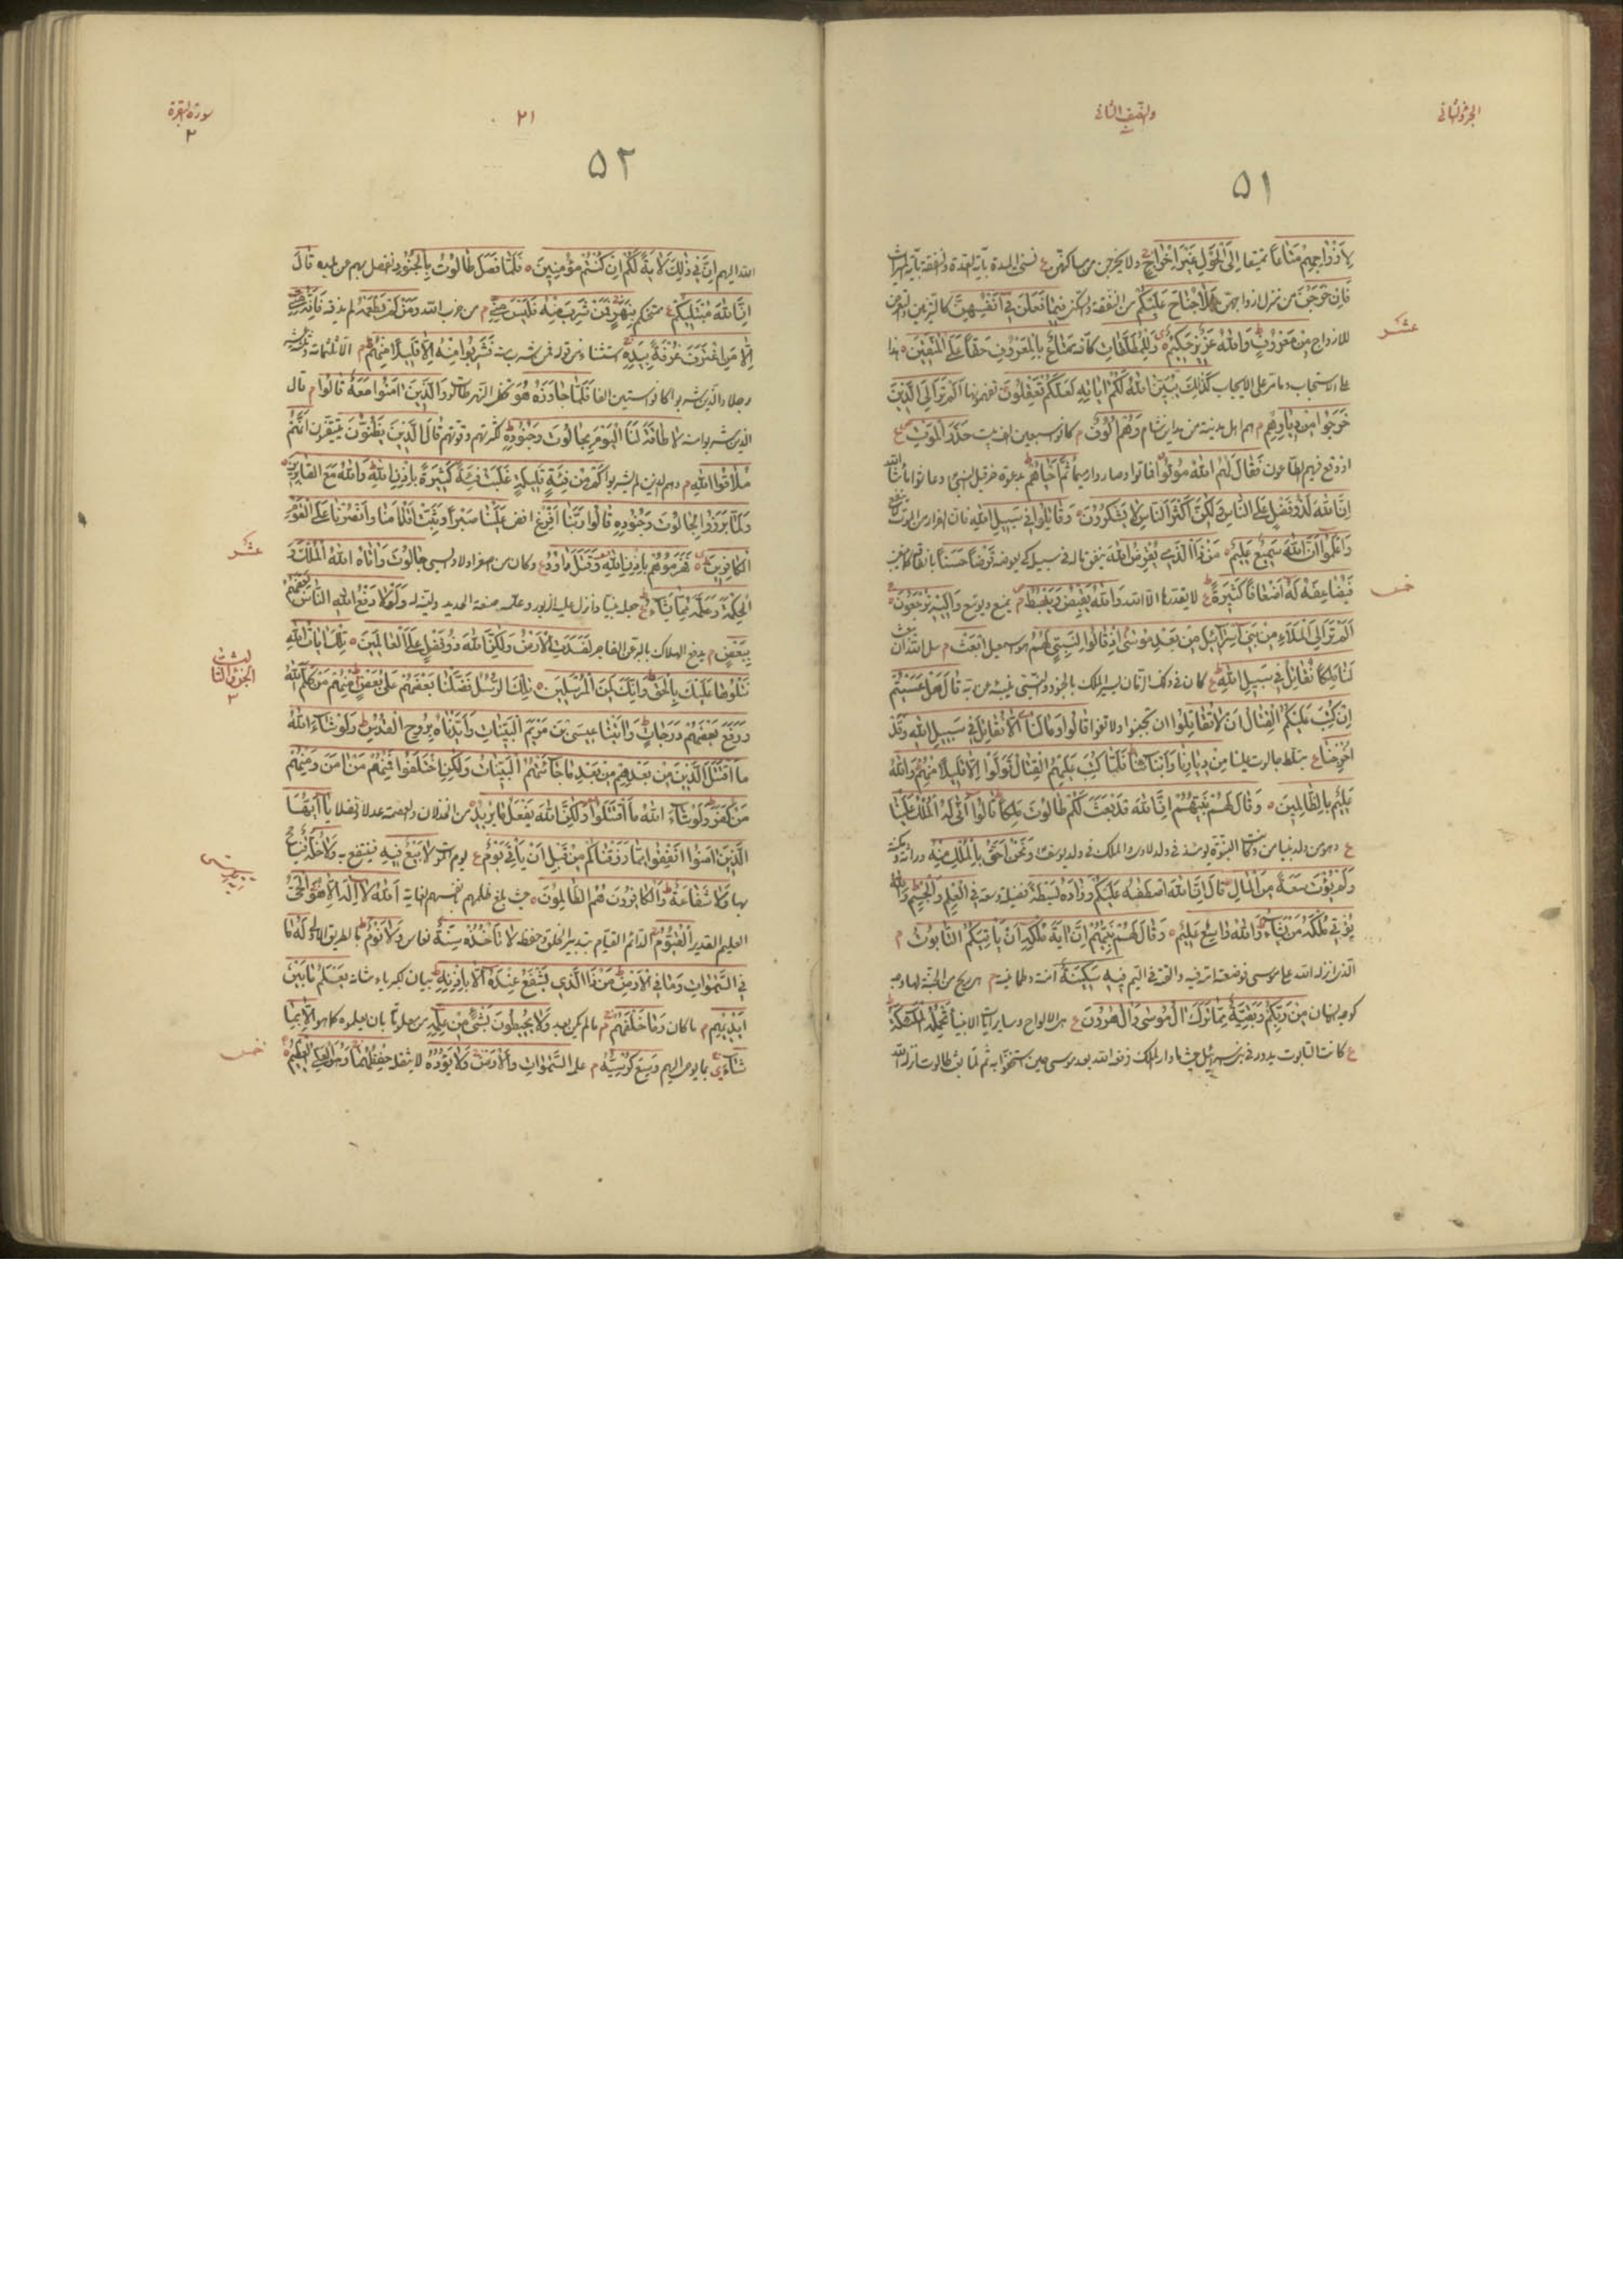 الجزء الثاني
والنصف الثاني
٥١
لِأَزْوَاجِهِمْ مَتَاعًا تمتيعا إِلَى الْحَوْلِ غَيْرَ إِخْرَاجٍ ولا يخرجن من مساكنهن ع نسخ المدة بآية العدة والنفقة بآية الميراث
فَإِنْ خَرَجْنَ من منزل ازواجهن فَلَا جُنَاحَ عَلَيْكُمْ من النفقة فِيمَا فَعَلْنَ فِي أَنْفُسِهِنَّ كالتزين والتعرض
عشر
للازواج مِنْ مَعْرُوفٍ وَاللَّهُ عَزِيزٌ حَكِيمٌ وَلِلْمُطَلَّقَاتِ كافة مَتَاعٌ بِالْمَعْرُوفِ حَقًّا عَلَى الْمُتَّقِينَ هذا
على الاستحباب وما مر على الايجاب كَذَلِكَ يُبَيِّنُ اللَّهُ لَكُمْ آيَاتِهِ لَعَلَّكُمْ تَعْقِلُونَ تفهمونها أَلَمْ تَرَ إِلَى الَّذِينَ
خَرَجُوا مِنْ دِيَارِهِمْ م هم اهل مدينة من مداين شام وَهُمْ أُلُوفٌ م كانوا سبعين الف بيت حَذَرَ الْمَوْتِ ع
اذ وقع فيهم الطاعون فَقَالَ لَهُمُ اللَّهُ مُوتُوا فماتوا وصاروا رميما ثُمَّ أَحْيَاهُمْ بدعوة حزقيل النبي وعاشوا ما شاء الله
إِنَّ اللَّهَ لَذُو فَضْلٍ عَلَى النَّاسِ وَلَكِنَّ أَكْثَرَ النَّاسِ لَا يَشْكُرُونَ وَقَاتِلُوا فِي سَبِيلِ اللَّهِ فان الفرار من الموت
وَاعْلَمُوا أَنَّ اللَّهَ سَمِيعٌ عَلِيمٌ مَنْ ذَا الَّذِي يُقْرِضُ اللَّهَ ينفق ماله في سبيله كي يعوضه قَرْضًا حَسَنًا
خمس
فَيُضَاعِفَهُ لَهُ أَضْعَافًا كَثِيرَةً ع لا يقدرها الا الله وَاللَّهُ يَقْبِضُ وَيَبْسُطُ م يمنع ويوسع وَإِلَيْهِ تُرْجَعُونَ
أَلَمْ تَرَ إِلَى الْمَلَإِ مِنْ بَنِي إِسْرَائِيلَ مِنْ بَعْدِ مُوسَى إِذْ قَالُوا لِنَبِيٍّ لَهُمُ هو اسمعيل ابْعَثْ م سل الله ان
لَنَا مَلِكًا نُقَاتِلْ فِي سَبِيلِ اللَّهِ ع كان في ذلك الزمان يسير الملك بالجنود والنبي قَالَ هَلْ عَسَيْتُمْ
إِنْ كُتِبَ عَلَيْكُمُ الْقِتَالُ أَلَّا تُقَاتِلُوا ان تجبنوا ولا تفوا قَالُوا وَمَا لَنَا أَلَّا نُقَاتِلَ فِي سَبِيلِ اللَّهِ وَقَدْ
أُخْرِجْنَا ع بتسلط جالوت علينا مِنْ دِيَارِنَا وَأَبْنَائِنَا فَلَمَّا كُتِبَ عَلَيْهِمُ الْقِتَالُ تَوَلَّوْا إِلَّا قَلِيلًا مِنْهُمْ وَاللَّهُ
عَلِيمٌ بِالظَّالِمِينَ وَقَالَ لَهُمْ نَبِيُّهُمْ إِنَّ اللَّهَ قَدْ بَعَثَ لَكُمْ طَالُوتَ مَلِكًا قَالُوا أَنَّى يَكُونُ لَهُ الْمُلْكُ عَلَيْنَا
ع وهو من ولد بنيامين وكانت النبوة يومئذ في ولد لاوى والملك في ولد يوسف وَنَحْنُ أَحَقُّ بِالْمُلْكِ مِنْهُ
وَلَمْ يُؤْتَ سَعَةً مِنَ الْمَالِ قَالَ إِنَّ اللَّهَ اصْطَفَاهُ عَلَيْكُمْ وَزَادَهُ بَسْطَةً فضيلة وسعة فِي الْعِلْمِ وَالْجِسْمِ وَاللَّهُ
يُؤْتِي مُلْكَهُ مَنْ يَشَاءُ وَاللَّهُ وَاسِعٌ عَلِيمٌ وَقَالَ لَهُمْ نَبِيُّهُمْ إِنَّ آيَةَ مُلْكِهِ أَنْ يَأْتِيَكُمُ التَّابُوتُ م
الذي انزله الله على موسى فوضعته امه فيه والقته في اليم فِيهِ سَكِينَةٌ امنة وطمانية م الريح من الجنة لها وجه
كوجه الانسان مِنْ رَبِّكُمْ وَبَقِيَّةٌ مِمَّا تَرَكَ آلُ مُوسَى وَآلُ هَارُونَ ع هي الالواح وساير آيات الانبياء تَحْمِلُهُ الْمَلَائِكَةُ
ع كانت التابوت يدور في بني اسرائيل حيثما دار الملك رفعه الله بعد موسى حين استخفوا به ثم لما بعث طالوت انزله الله
سورة البقرة
٢
٢١
٥٢
الله اليهم إِنَّ فِي ذَلِكَ لَآيَةً لَكُمْ إِنْ كُنْتُمْ مُؤْمِنِينَ فَلَمَّا فَصَلَ طَالُوتُ بِالْجُنُودِ انفصل بهم عن بلده قَالَ
إِنَّ اللَّهَ مُبْتَلِيكُمْ ع ممتحنكم بِنَهَرٍ فَمَنْ شَرِبَ مِنْهُ فَلَيْسَ مِنِّي م من حزب الله وَمَنْ لَمْ يَطْعَمْهُ لم يذقه فَإِنَّهُ مِنِّي
إِلَّا مَنِ اغْتَرَفَ غُرْفَةً بِيَدِهِ استثناء من قوله فمن شرب منه فَشَرِبُوا مِنْهُ إِلَّا قَلِيلًا مِنْهُمْ م الا ثلثمائة وثلثة عشر
رجلا والذين شربوا كانوا ستين الفا فَلَمَّا جَاوَزَهُ هُوَ تخطى النهر طالوت وَالَّذِينَ آمَنُوا مَعَهُ قَالُوا م قال
الذين شربوا منه لَا طَاقَةَ لَنَا الْيَوْمَ بِجَالُوتَ وَجُنُودِهِ لكثرتهم وقوتهم قَالَ الَّذِينَ يَظُنُّونَ يتيقنون أَنَّهُمْ
مُلَاقُوا اللَّهِ م وهم الذين لم يشربوا كَمْ مِنْ فِئَةٍ قَلِيلَةٍ غَلَبَتْ فِئَةً كَثِيرَةً بِإِذْنِ اللَّهِ وَاللَّهُ مَعَ الصَّابِرِينَ
وَلَمَّا بَرَزُوا لِجَالُوتَ وَجُنُودِهِ قَالُوا رَبَّنَا أَفْرِغْ افض عَلَيْنَا صَبْرًا وَثَبِّتْ أَقْدَامَنَا وَانْصُرْنَا عَلَى الْقَوْمِ
عشر
الْكَافِرِينَ فَهَزَمُوهُمْ بِإِذْنِ اللَّهِ وَقَتَلَ دَاوُدُ ع وكان من اصغر اولاد ايسى جَالُوتَ وَآتَاهُ اللَّهُ الْمُلْكَ وَ
الْحِكْمَةَ وَعَلَّمَهُ مِمَّا يَشَاءُ ع جعله نبيا وانزل عليه الزبور وعلمه صنعة الحديد ولينه له وَلَوْلَا دَفْعُ اللَّهِ النَّاسَ بَعْضَهُمْ
بِبَعْضٍ م يدفع الهلاك بالبر عن الفاجر لَفَسَدَتِ الْأَرْضُ وَلَكِنَّ اللَّهَ ذُو فَضْلٍ عَلَى الْعَالَمِينَ تِلْكَ آيَاتُ اللَّهِ
الجزء الثالث
٣
نَتْلُوهَا عَلَيْكَ بِالْحَقِّ وَإِنَّكَ لَمِنَ الْمُرْسَلِينَ تِلْكَ الرُّسُلُ فَضَّلْنَا بَعْضَهُمْ عَلَى بَعْضٍ مِنْهُمْ مَنْ كَلَّمَ اللَّهُ
وَرَفَعَ بَعْضَهُمْ دَرَجَاتٍ وَآتَيْنَا عِيسَى ابْنَ مَرْيَمَ الْبَيِّنَاتِ وَأَيَّدْنَاهُ بِرُوحِ الْقُدُسِ وَلَوْ شَاءَ اللَّهُ
مَا اقْتَتَلَ الَّذِينَ مِنْ بَعْدِهِمْ مِنْ بَعْدِ مَا جَاءَتْهُمُ الْبَيِّنَاتُ وَلَكِنِ اخْتَلَفُوا فَمِنْهُمْ مَنْ آمَنَ وَمِنْهُمْ
مَنْ كَفَرَ وَلَوْ شَاءَ اللَّهُ مَا اقْتَتَلُوا وَلَكِنَّ اللَّهَ يَفْعَلُ مَا يُرِيدُ من الخذلان والعصمة عدلا وفضلا يَا أَيُّهَا
الَّذِينَ آمَنُوا أَنْفِقُوا مِمَّا رَزَقْنَاكُمْ مِنْ قَبْلِ أَنْ يَأْتِيَ يَوْمٌ ع يوم الموت لَا بَيْعٌ فِيهِ فينتفع به وَلَا خُلَّةٌ ينتفع
بها وَلَا شَفَاعَةٌ وَالْكَافِرُونَ هُمُ الظَّالِمُونَ حيث بلغ ظلمهم بانفسهم الغاية اللَّهُ لَا إِلَهَ إِلَّا هُوَ الْحَيُّ
العليم القدير الْقَيُّومُ الدائم القيام بتدبير الخلق وحفظه لَا تَأْخُذُهُ سِنَةٌ نعاس وَلَا نَوْمٌ بالطريق الاولى لَهُ مَا
فِي السَّمَوَاتِ وَمَا فِي الْأَرْضِ مَنْ ذَا الَّذِي يَشْفَعُ عِنْدَهُ إِلَّا بِإِذْنِهِ بيان لكبرياء شانه يَعْلَمُ مَا بَيْنَ
أَيْدِيهِمْ م ما كان وَمَا خَلْفَهُمْ م ما لم يكن بعد وَلَا يُحِيطُونَ بِشَيْءٍ مِنْ عِلْمِهِ من معلوماته بان يعلموه كما هو إِلَّا بِمَا
خمس
شَاءَ بما يوحى اليهم وَسِعَ كُرْسِيُّهُ م علمه السَّمَوَاتِ وَالْأَرْضَ وَلَا يَئُودُهُ لا يثقله حِفْظُهُمَا وَهُوَ الْعَلِيُّ الْعَظِيمُ